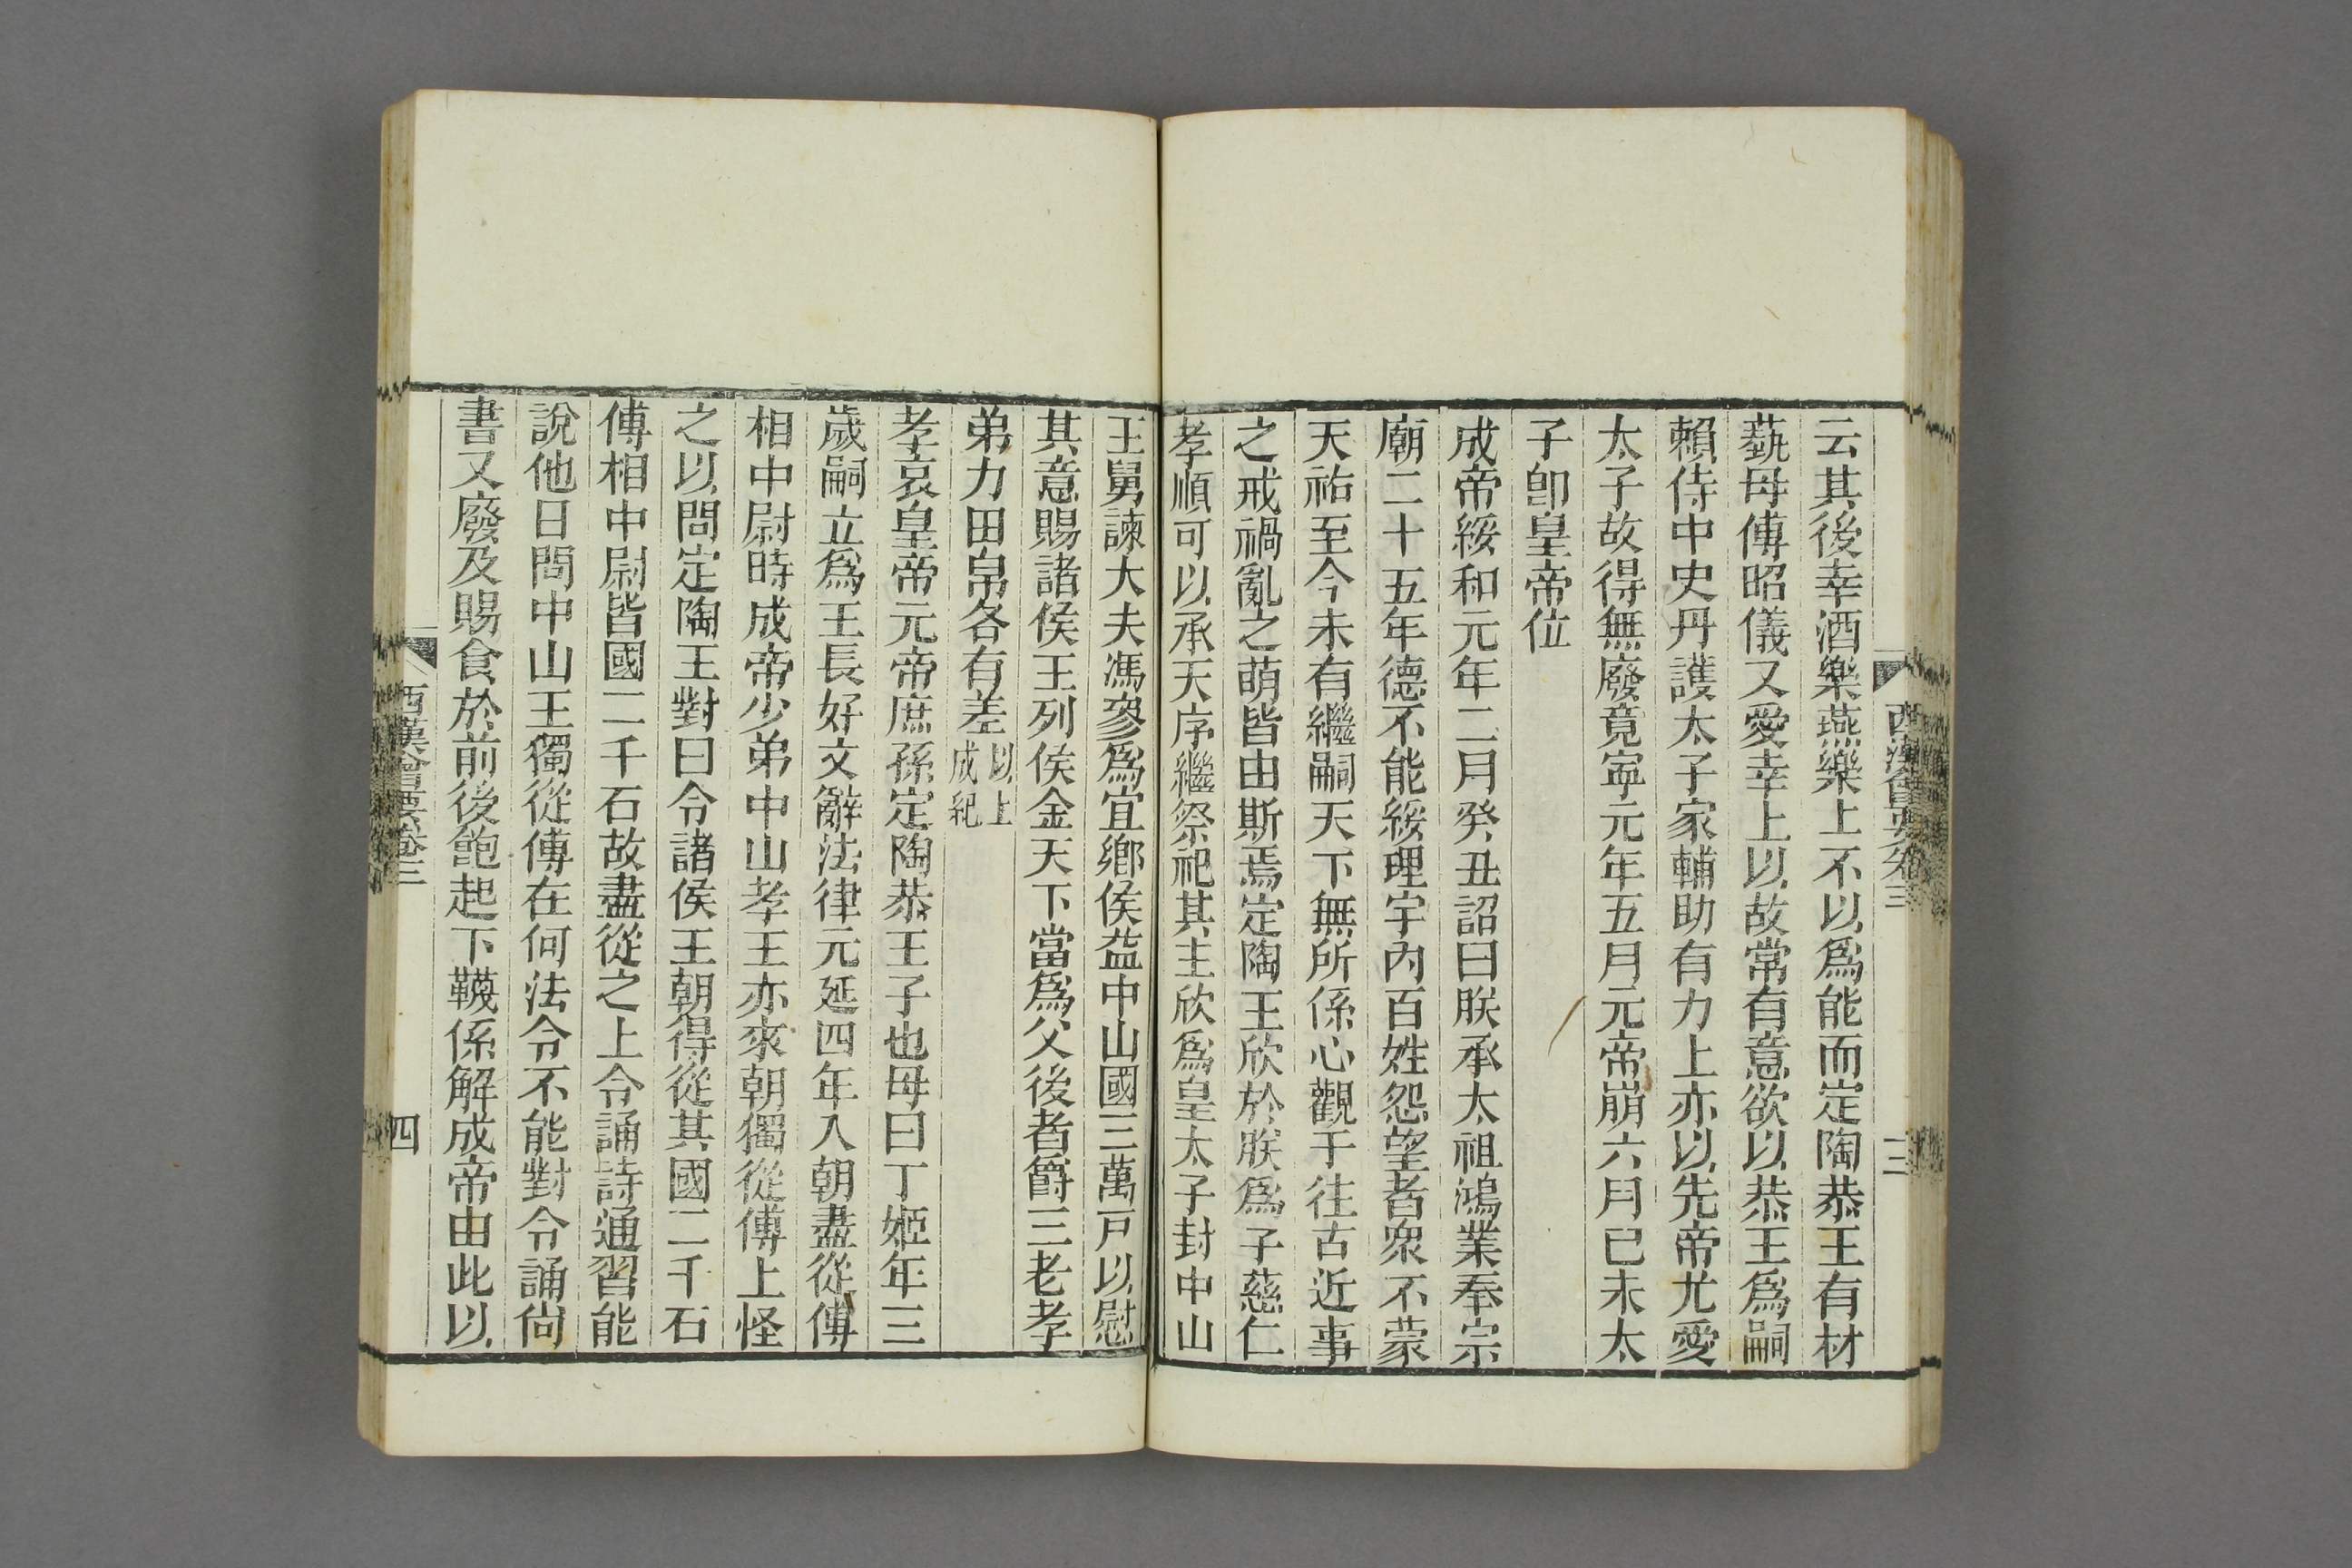 西漢會要卷三
三
云其後幸酒樂燕樂上不以爲能而定陶恭王有材
藝母傅昭儀又愛幸上以故常有意欲以恭王爲嗣
賴侍中史丹護太子家輔助有力上亦以先帝尤愛
太子故得無廢竟寧元年五月元帝崩六月已未太
子卽皇帝位
成帝綏和元年二月癸丑詔曰朕承太祖鴻業奉宗
廟二十五年德不能綏理宇內百姓怨望者眾不蒙
天祐至今未有繼嗣天下無所係心觀于往古近事
之戒禍亂之萌皆由斯焉定陶王欣於朕爲子慈仁
孝順可以承天序繼祭祀其主欣爲皇太子封中山
王舅諫大夫馮參爲宜鄉侯益中山國三萬戸以慰
其意賜諸侯王列侯金天下當爲父後者爵三老孝
弟力田帛各有差以上成紀
孝哀皇帝元帝庶孫定陶恭王子也母曰丁姬年三
歲嗣立爲王長好文辭法律元延四年入朝盡從傅
相中尉時成帝少弟中山孝王亦來朝獨從傅上怪
之以問定陶王對曰令諸侯王朝得從其國二千石
傅相中尉皆國二千石故盡從之上令誦詩通習能
說他日問中山王獨從傅在何法令不能對令誦尙
書又廢及賜食於前後飽起下韈係解成帝由此以
西漢會要卷三
四